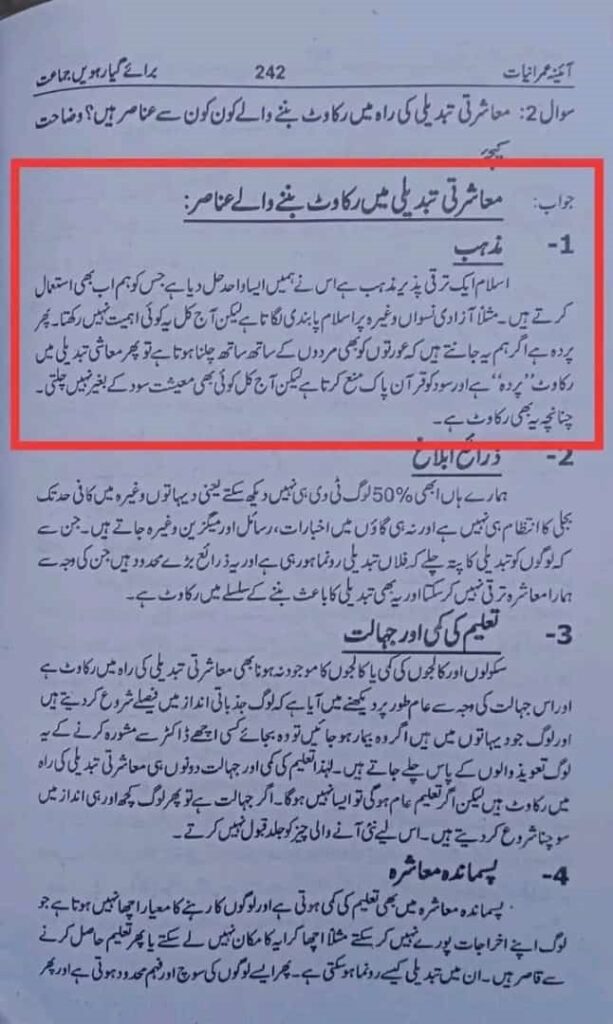 آئینہ عمرانیات 242 برائے گیارہویں جماعت
سوال 2: معاشرتی تبدیلی کی راہ میں رکاوٹ بننے والے کون کون سے عناصر ہیں؟ وضاحت
کیجئے
جواب: معاشرتی تبدیلی میں رکاوٹ بننے والے عناصر:
1- مذہب
اسلام ایک ترقی پذیر مذہب ہے اس نے ہمیں ایسا واحد حل دیا ہے جس کو ہم اب بھی استعمال
کرتے ہیں۔ مثلاً آزادی نسواں وغیرہ پر اسلام پابندی لگاتا ہے لیکن آج کل یہ کوئی اہمیت نہیں رکھتا۔ پھر
پردہ ہے اگر ہم یہ جانتے ہیں کہ عورتوں کو بھی مردوں کے ساتھ ساتھ چلنا ہوتا ہے تو پھر معاشی تبدیلی میں
رکاوٹ ”پردہ“ ہے اور سود کو قرآن پاک منع کرتا ہے لیکن آج کل کوئی بھی معیشت سود کے بغیر نہیں چلتی۔
چنانچہ یہ بھی رکاوٹ ہے۔
2- ذرائع ابلاغ
ہمارے ہاں ابھی 50% لوگ ٹی وی ہی نہیں دیکھ سکتے یعنی دیہاتوں وغیرہ میں کافی حد تک
بجلی کا انتظام ہی نہیں ہے اور نہ ہی گاؤں میں اخبارات، رسائل اور میگزین وغیرہ جاتے ہیں۔ جن سے
کہ لوگوں کو تبدیلی کا پتہ چلے کہ فلاں تبدیلی رونما ہو رہی ہے اور یہ ذرائع بڑے محدود ہیں جن کی وجہ سے
ہمارا معاشرہ ترقی نہیں کر سکتا اور یہ بھی تبدیلی کا باعث بننے کے سلسلے میں رکاوٹ ہے۔
3- تعلیم کی کمی اور جہالت
سکولوں اور کالجوں کی کمی یا کالجوں کا موجود نہ ہونا بھی معاشرتی تبدیلی کی راہ میں رکاوٹ ہے
اور اس جہالت کی وجہ سے عام طور پر دیکھنے میں آیا ہے کہ لوگ جذباتی انداز میں فیصلے شروع کر دیتے ہیں
اور لوگ جو دیہاتوں میں ہیں اگر وہ بیمار ہو جائیں تو وہ بجائے کسی اچھے ڈاکٹر سے مشورہ کرنے کے یہ
لوگ تعویذ والوں کے پاس چلے جاتے ہیں۔ لہٰذا تعلیم کی کمی اور جہالت دونوں ہی معاشرتی تبدیلی کی راہ
میں رکاوٹ ہیں لیکن اگر تعلیم عام ہوگی تو ایسا نہیں ہوگا۔ اگر جہالت ہے تو پھر لوگ کچھ اور ہی انداز میں
سوچنا شروع کر دیتے ہیں۔ اس لیے نئی آنے والی چیز کو جلد قبول نہیں کرتے۔
4- پسماندہ معاشرہ
پسماندہ معاشرہ میں بھی تعلیم کی کمی ہوتی ہے اور لوگوں کا رہنے کا معیار اچھا نہیں ہوتا ہے جو
لوگ اپنے اخراجات پورے نہیں کر سکتے مثلاً اچھا کرایہ کا مکان نہیں لے سکتے یا پھر تعلیم حاصل کرنے
سے قاصر ہیں۔ ان میں تبدیلی کیسے رونما ہو سکتی ہے۔ پھر ایسے لوگوں کی سوچ اور فہم محدود ہوتی ہے اور پھر